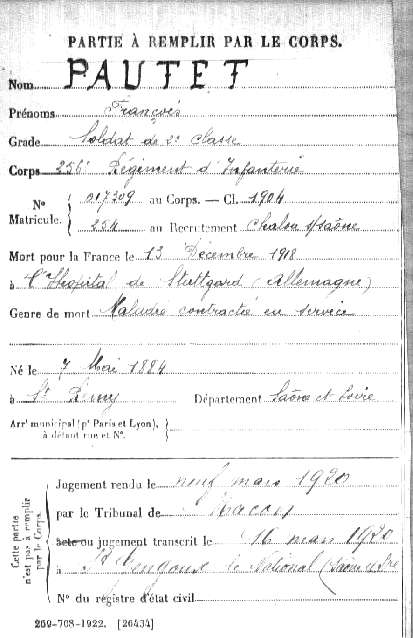 PARTIE À REMPLIR PAR LE CORPS.
Nom PAUTET
Prénoms François
Grade Soldat de 2e Classe
Corps 256e Régiment d'Infanterie
N° Matricule. { 017309 au Corps. — Cl. 1904
254 au Recrutement Chalon s/Saône
Mort pour la France le 13 Décembre 1918
à l'Hôpital de Stuttgard (Allemagne)
Genre de mort Maladie contractée en service
Né le 7 Mai 1884
à St Remy Département Saône et Loire
Arrt municipal (pr Paris et Lyon), à défaut rue et N°. }
Cette partie n'est pas à remplir par le Corps.
Jugement rendu le neuf mars 1920
par le Tribunal de Macon
acte ou jugement transcrit le 16 mars 1920
à St Gengoux le National (Saône et Loire
N° du registre d'état civil
269-708-1922. [26434]